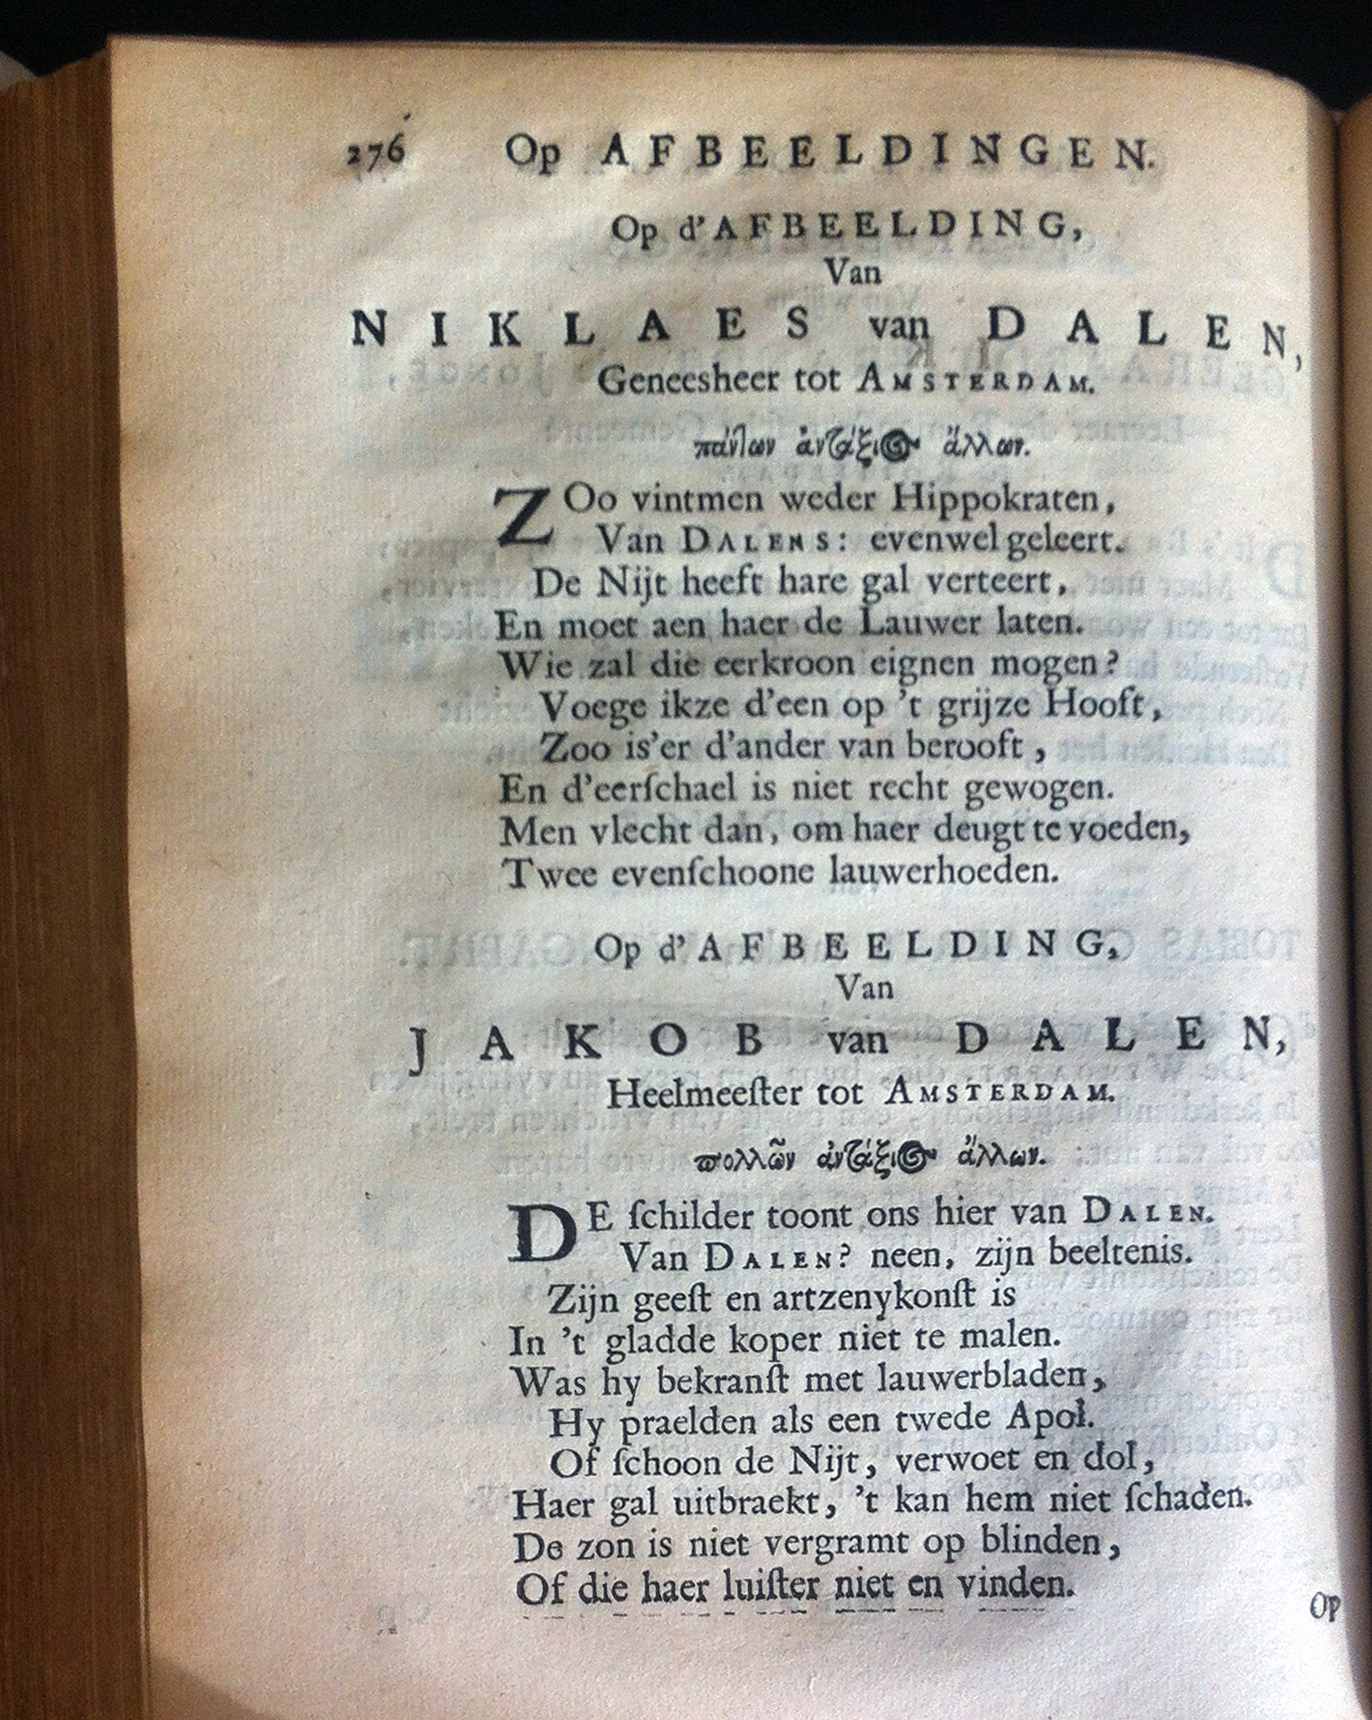 276 Op AFBEELDINGEN.
Op d'AFBEELDING,
Van
NIKLAES van DALEN,
Geneesheer tot AMSTERDAM.
πάντων ἀντάξιος ἄλλων.
ZOo vintmen weder Hippokraten,
Van DALENS: evenwel geleert.
De Nijt heeft hare gal verteert,
En moet aen haer de Lauwer laten.
Wie zal die eerkroon eignen mogen?
Voege ikze d'een op 't grijze Hooft,
Zoo is'er d'ander van berooft,
En d'eerſchael is niet recht gewogen.
Men vlecht dan, om haer deugt te voeden,
Twee evenſchoone lauwerhoeden.
Op d'AFBEELDING,
Van
JAKOB van DALEN,
Heelmeeſter tot AMSTERDAM.
πολλῶν ἀντάξιος ἄλλων.
DE ſchilder toont ons hier van DALEN.
Van DALEN? neen, zijn beeltenis.
Zijn geeſt en artzenykonſt is
In 't gladde koper niet te malen.
Was hy bekranſt met lauwerbladen,
Hy praelden als een twede Apol.
Of ſchoon de Nijt, verwoet en dol,
Haer gal uitbraekt, 't kan hem niet ſchaden.
De zon is niet vergramt op blinden,
Of die haer luiſter niet en vinden.
Op